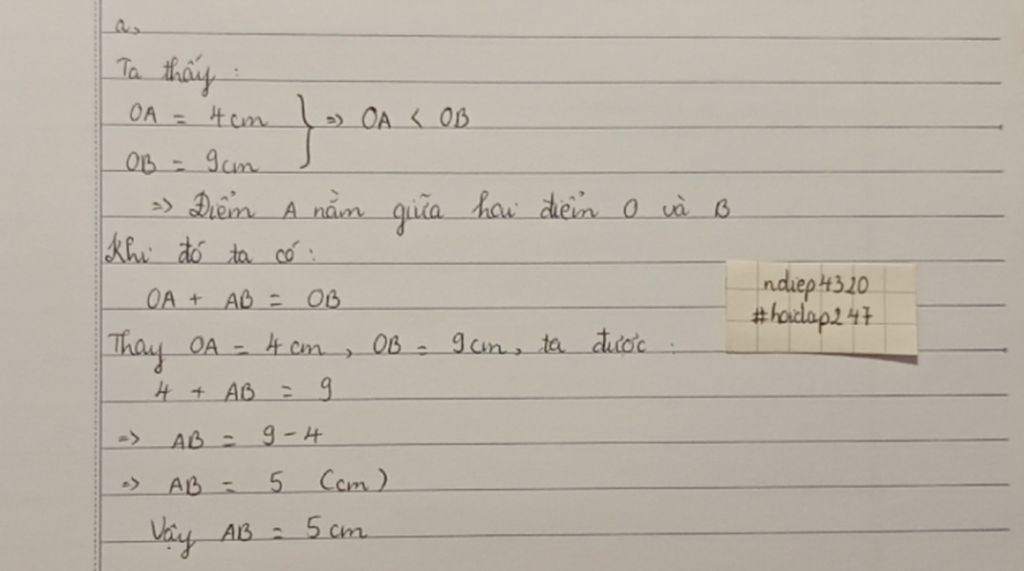 a,
Ta thấy :
OA = 4cm } => OA < OB
OB = 9cm
=> Điểm A nằm giữa hai điểm O và B
Khi đó ta có :
OA + AB = OB
ndiep4320
#hoidap247
Thay OA = 4cm, OB = 9cm, ta được :
4 + AB = 9
=> AB = 9 - 4
=> AB = 5 (cm)
Vậy AB = 5cm